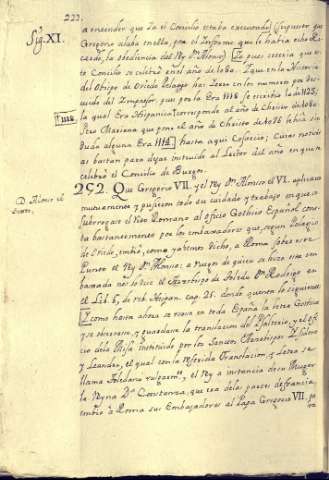 222.
Sig. XI.
a entender que ya el Concilio estaba executado
Gregorio alaba en ella, por el Informe, que le havia echo Ri-
cardo, la obediencia del Rey Dn. Alonso) Lo pues creeria que es-
te Concilio se celebró en el año de 1080. Y aun en la Historia
del Obispo de Oviedo Pelayo haz leer en los numeros por des-
cuido del Impresor, que por la Era 1118 se escribia la de 1123,
la qual Era Hispanica corresponde al año de Christo de 1080.
1118
Pero Mariana que pone el año de Christo de 1076 le havia sin
duda alguna Era 1114. hasta aqui Cossarcio; Cuias noticias
bastan para dejar instruido al Lector del año en que se
celebró el Concilio de Burgos.
D. Alonso el
Sexto,
292. Que Gregorio VII. y el Rey Dn. Alonso el VI. aplicaron
mutuamente y pusieron todo su cuidado y trabajo en que se
subrogase el Rito Romano al oficio Gothico Español, cons-
ta bastantemente por los embaxadores que, segun Pelagio
de Oviedo, embió, como ya hemos dicho, a Roma sobre este
Punto el Rey Dn. Alonso: a ruego de quien se hizo esta em-
bajada nos lo dice el Arzobispo de Toledo Dn. Rodrigo en
el Lib. 6, de reb. Hispan. cap. 25. donde quenta lo siguiente
Y como hasta ahora se usara en toda España la letra Gothica
y se observara, y guardara la translacion del Psalterio, y el ofi-
cio de la Misa instituido por los Santos Arzobispos Isidoro
y Leandro, el qual con la referida Translacion, y letra se
llama Toledana vulgarmte, el Rey a instancia de su Muger
la Reyna Da. Constanza, que era de las partes de francia,
embió a Roma sus Embajadores al Papa Gregorio VII. pa